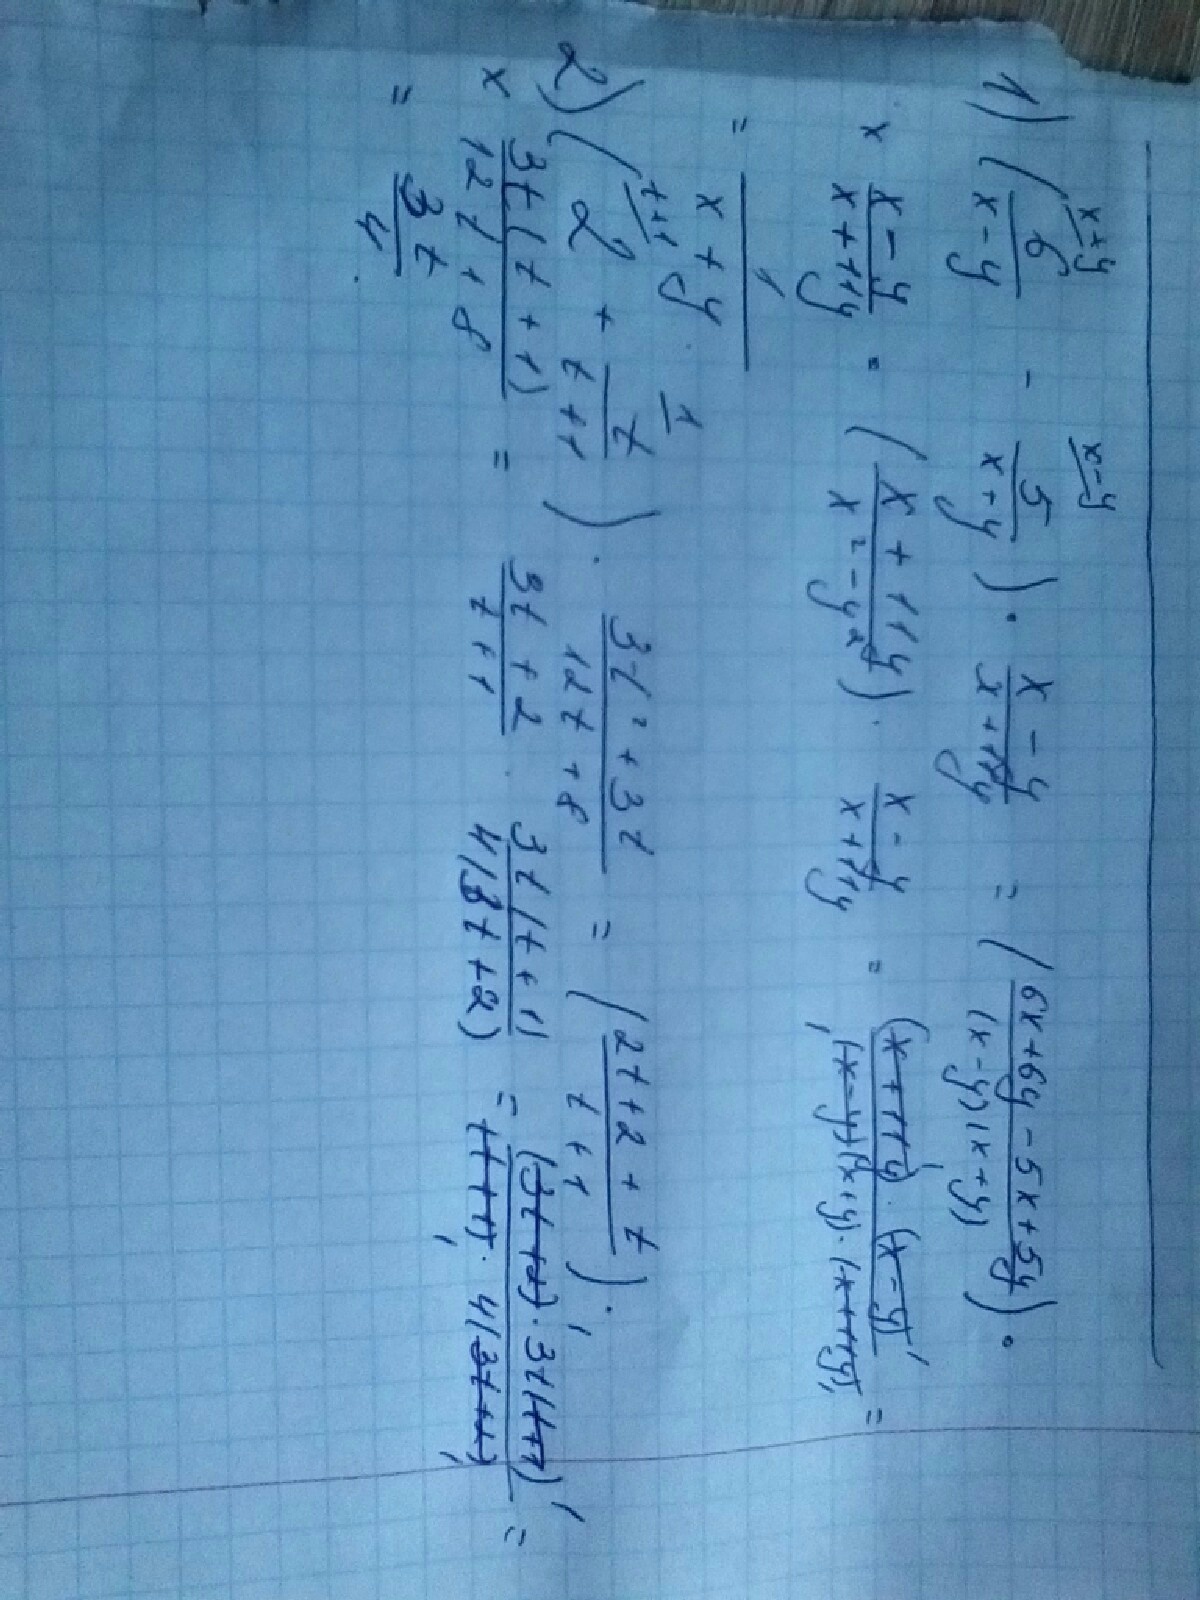 1) (6/(x-y) ^(x+y) - 5/(x+y) ^(x-y)) · (x-y)/(x+11y) = ((6x+6y-5x+5y)/((x-y)(x+y))) ·
× (x-y)/(x+11y) = ((x+11y)/(x²-y²)) · (x-y)/(x+11y) = ((x+11y)·(x-y))/((x-y)(x+y)·(x+11y)) =
= 1/(x+y)
2) (2 ^(t+1) + t/(t+1) ^1) · (3t²+3t)/(12t+8) = ((2t+2+t)/(t+1)) ·
× (3t(t+1))/(12t+8) = (3t+2)/(t+1) · (3t(t+1))/(4(3t+2)) = ((3t+2)·3t(t+1))/((t+1)·4(3t+2)) =
= 3t/4.